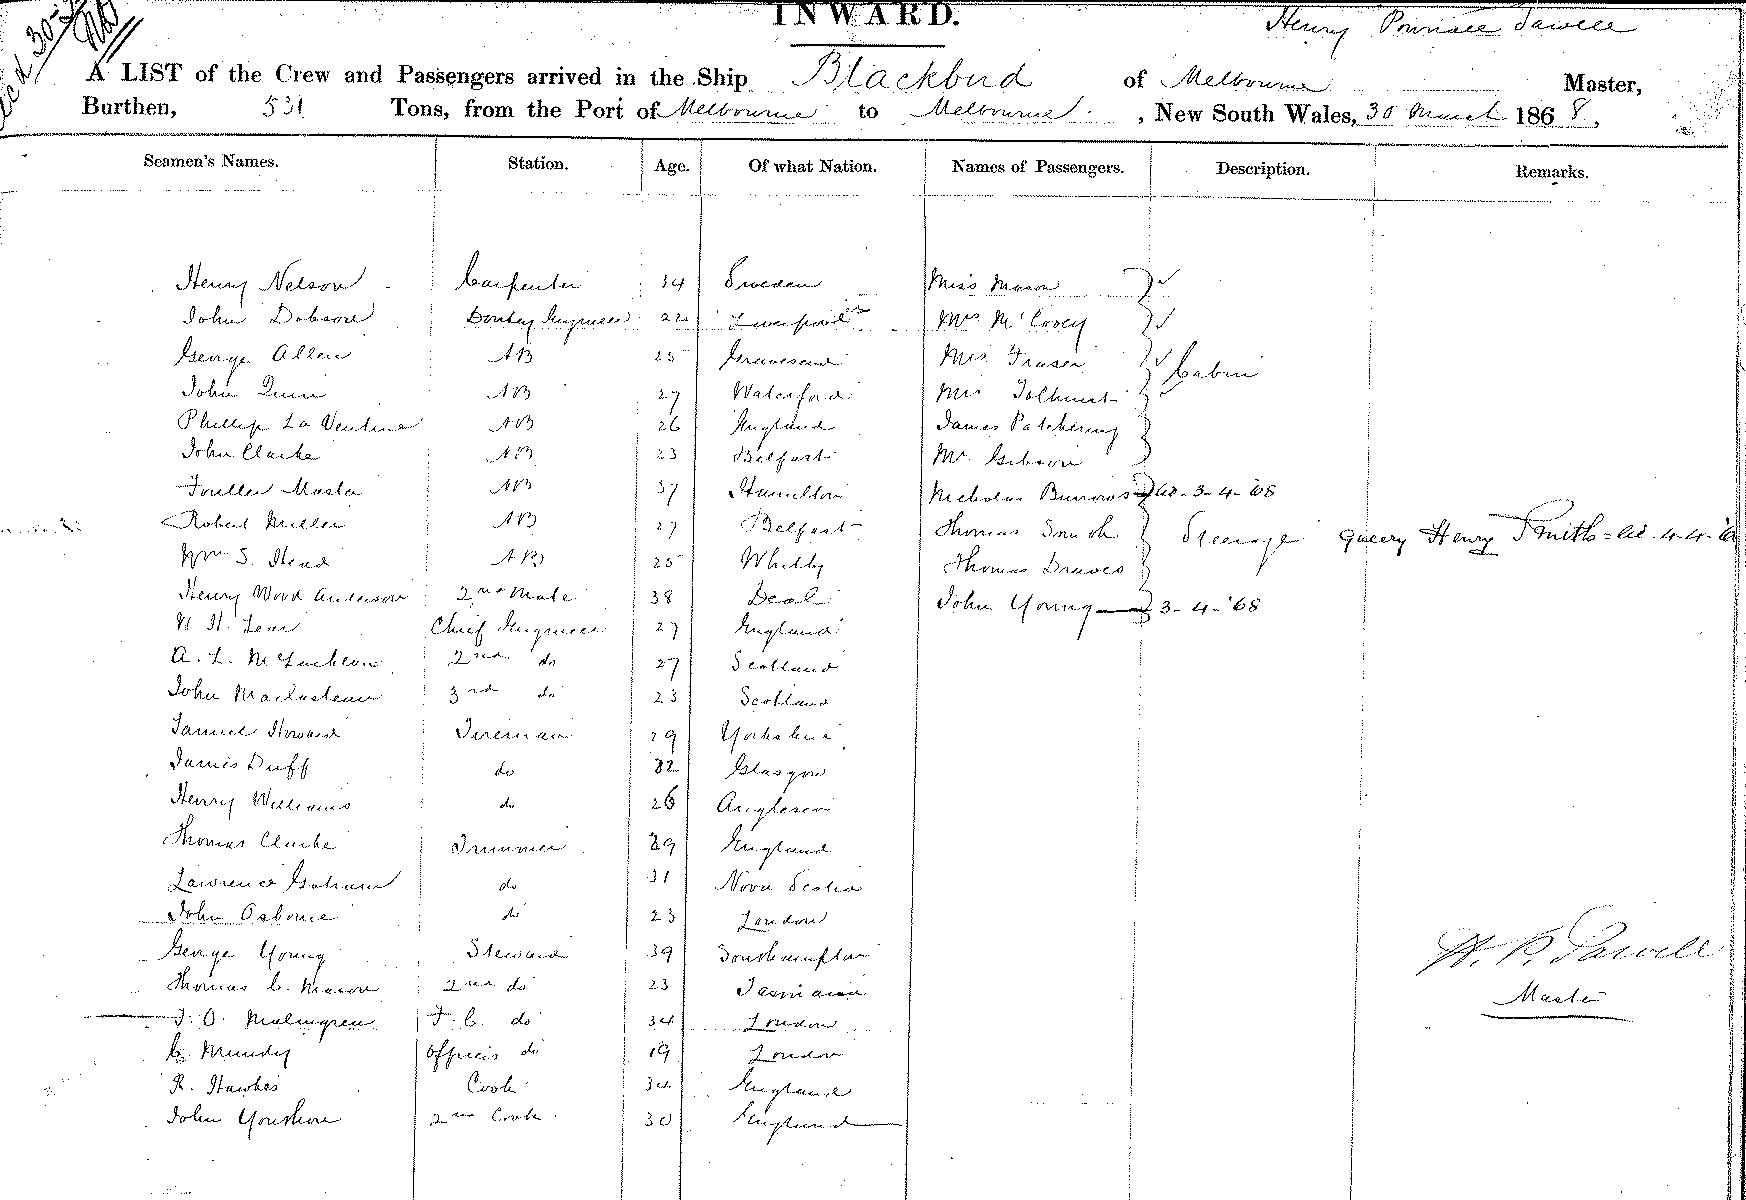 INWARD.
Henry Pownall Tawell
A LIST of the Crew and Passengers arrived in the Ship Blackbird of Melbourne Master,
Burthen, 531 Tons, from the Port of Melbourne to Melbourne, New South Wales, 30 March 1868,
Seamen's Names. Station. Age. Of what Nation. Names of Passengers. Description. Remarks.
Henry Nelson Carpenter 34 Sweden Miss Mason
John Dobson Donkey Engineer 22 Liverpool Mrs McCovey
George Allen AB 25 Gravesend Mrs Fraser
Cabin
John Quin AB 27 Waterford Mrs Tolhurst
Phillip La Ventine AB 26 England James Patchering
John Clarke AB 23 Belfast Mr Gibson
Master AB 37 Hamilton Nicholas Burrows 3-4-'68
Robert Miller AB 27 Belfast Thomas Smith Steerage Queery Henry Smith = 4-4-'68
Wm S. Head AB 25 Whitby Thomas Draves
Henry Wood Anderson 2nd Mate 38 Deal John Young 3-4-'68
Lear Chief Engineer 27 England
A. L. McLachlan 2nd do 27 Scotland
John 3rd do 23 Scotland
Samuel Howard Fireman 29 Yorkshire
James Duff do 32 Glasgow
Henry Williams do 26 Anglesea
Thomas Clarke Trimmer 29 England
Lawrence Graham do 31 Nova Scotia
John Osborne do 23 London
George Young Steward 39 Southampton
H. P. Tawell
Thomas C. Mason 2nd do 23 Tasmania
Master
J. O. Malmgren F. C. do 34 London
C. Mundy Officers do 19 London
R. Hawkes Cook 34 England
John Yorkshire 2nd Cook 30 England